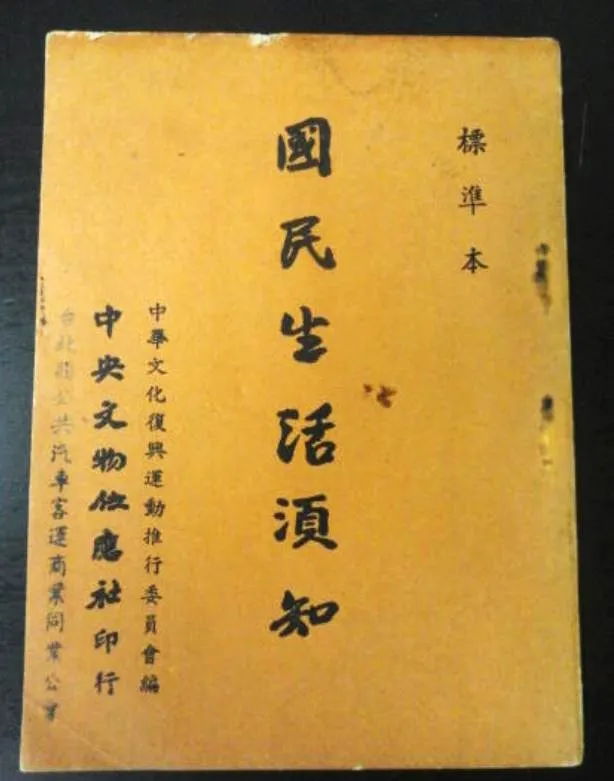 標準本
國民生活須知
中華文化復興運動推行委員會編
中央文物供應社印行
台北縣公共汽車客運商業同業公會